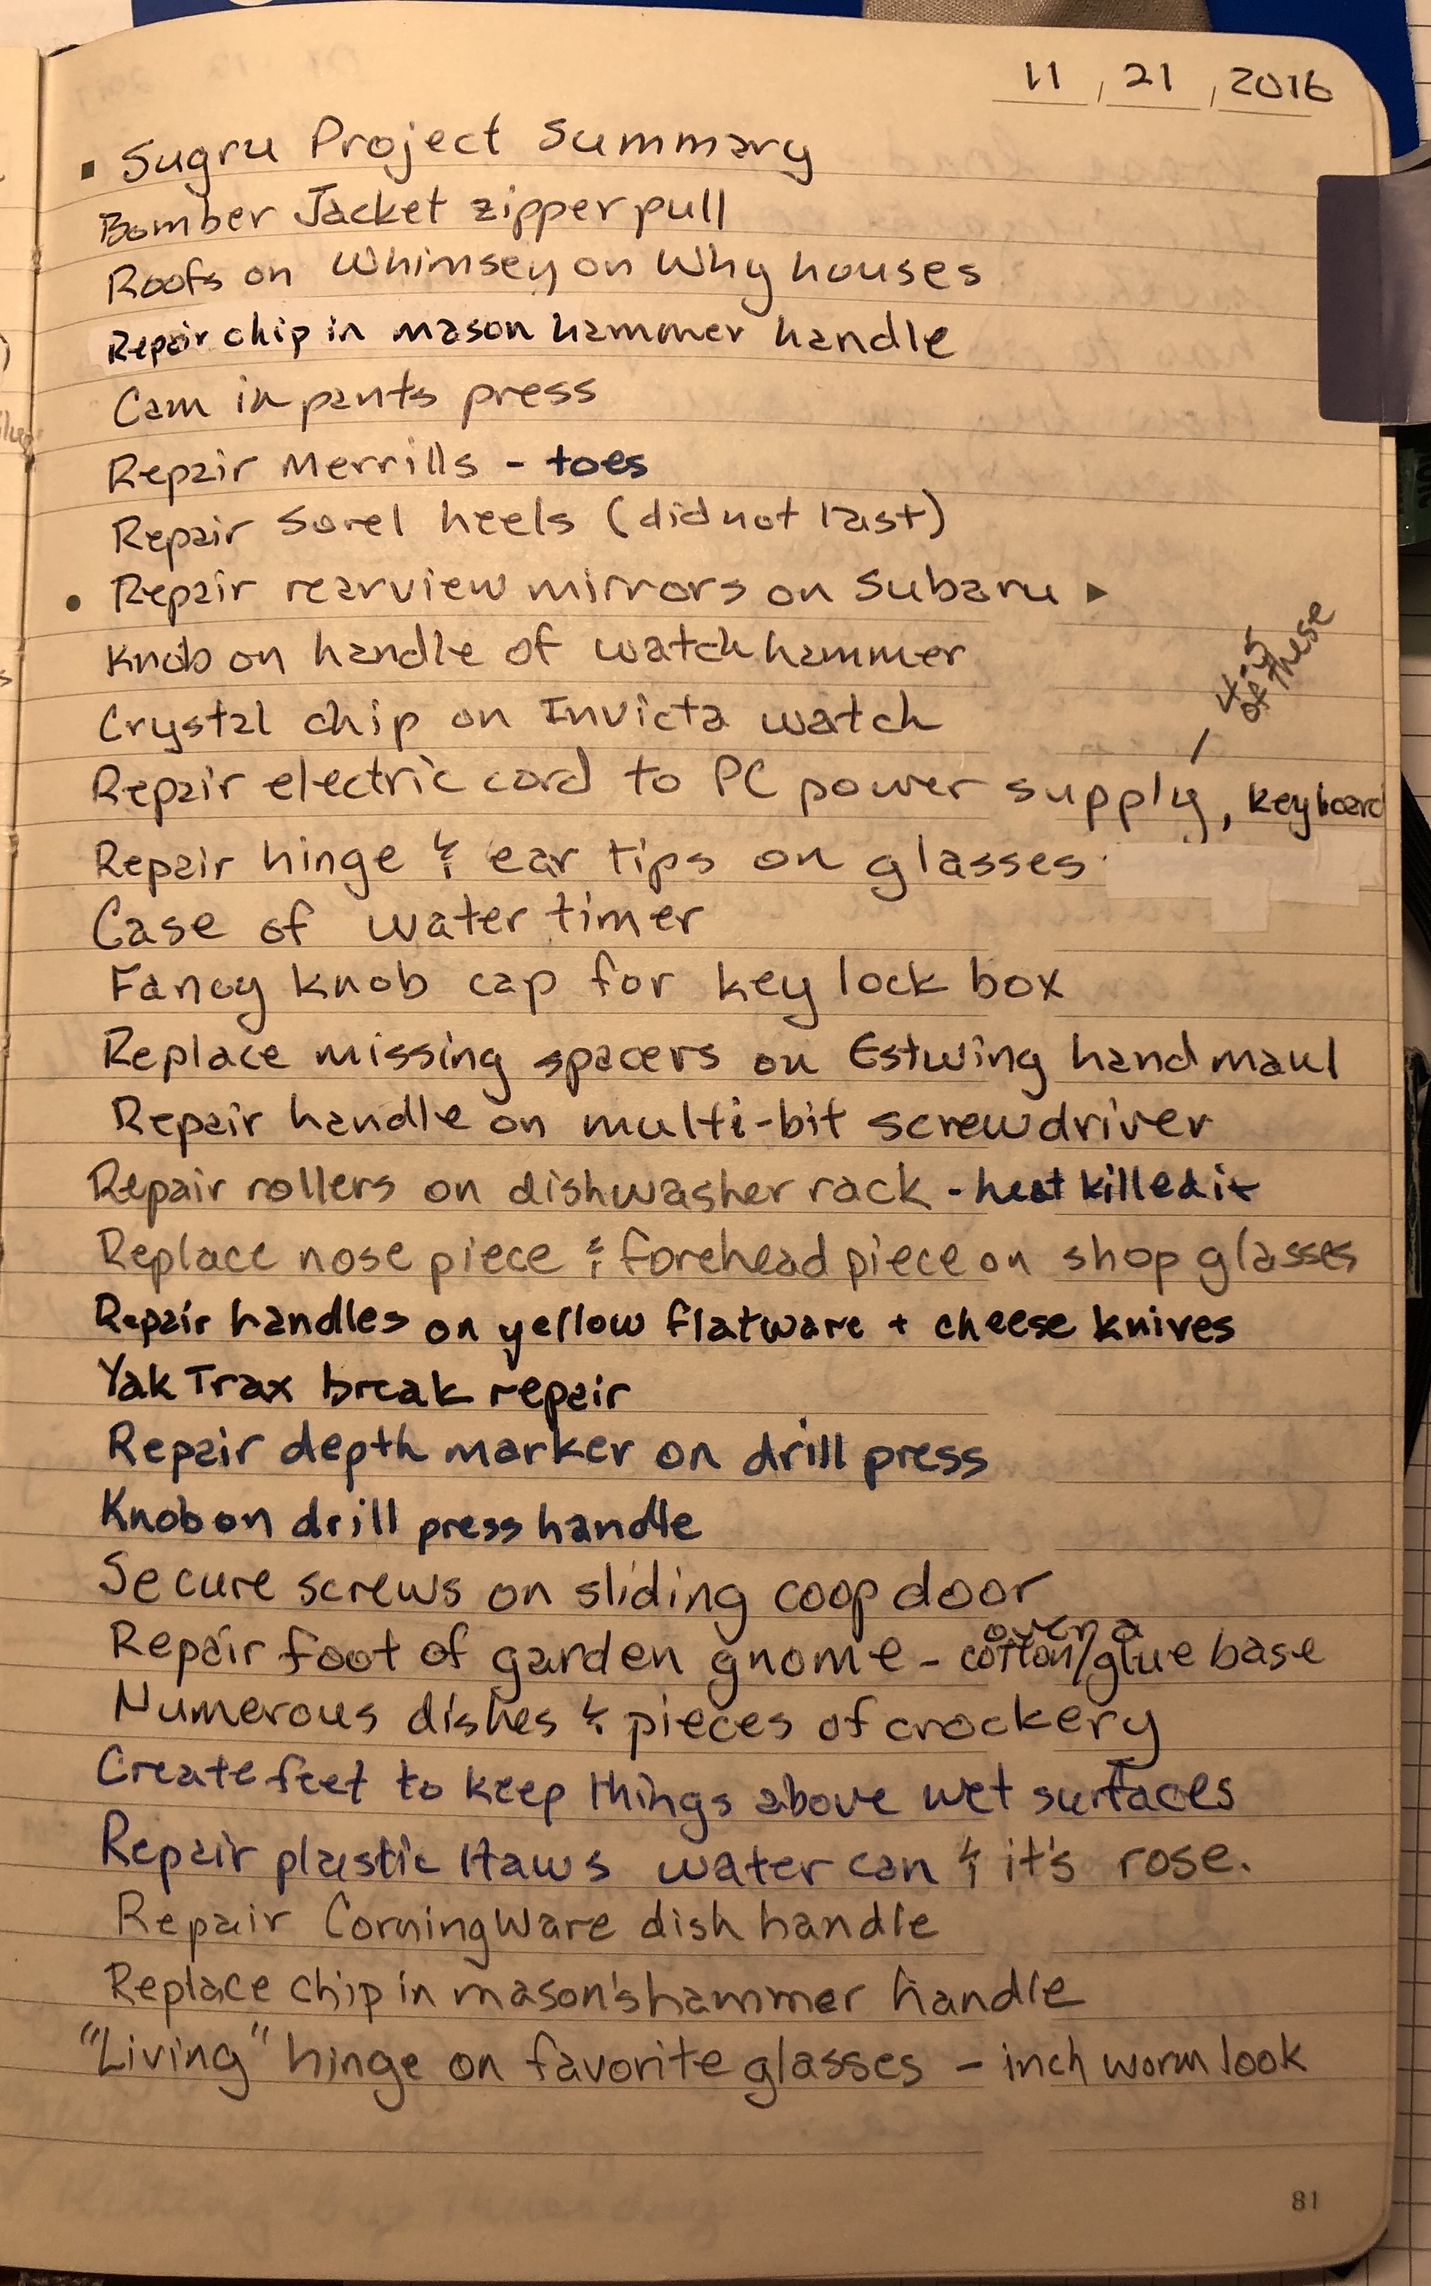 11, 21, 2016
▪ Sugru Project Summary
Bomber Jacket zipper pull
Roofs on Whimsey on Why houses
Repair chip in mason hammer handle
Cam in pants press
Repair Merrills - toes
Repair Sorel heels (did not last)
• Repair rearview mirrors on Subaru ▸
Knob on handle of watch hammer
Crystal chip on Invicta watch
4-5
of these
Repair electric cord to PC power supply, keyboard
Repair hinge & ear tips on glasses
Case of water timer
Fancy knob cap for key lock box
Replace missing spacers on Estwing hand maul
Repair handle on multi-bit screwdriver
Repair rollers on dishwasher rack - heat killed it
Replace nose piece & forehead piece on shop glasses
Repair handles on yellow flatware + cheese knives
Yak Trax break repair
Repair depth marker on drill press
Knob on drill press handle
Secure screws on sliding coop door
over a
Repair foot of garden gnome - cotton/glue base
Numerous dishes & pieces of crockery
Create feet to keep things above wet surfaces
Repair plastic Haws water can & it's rose.
Repair CorningWare dish handle
Replace chip in mason's hammer handle
"Living" hinge on favorite glasses - inch worm look
81